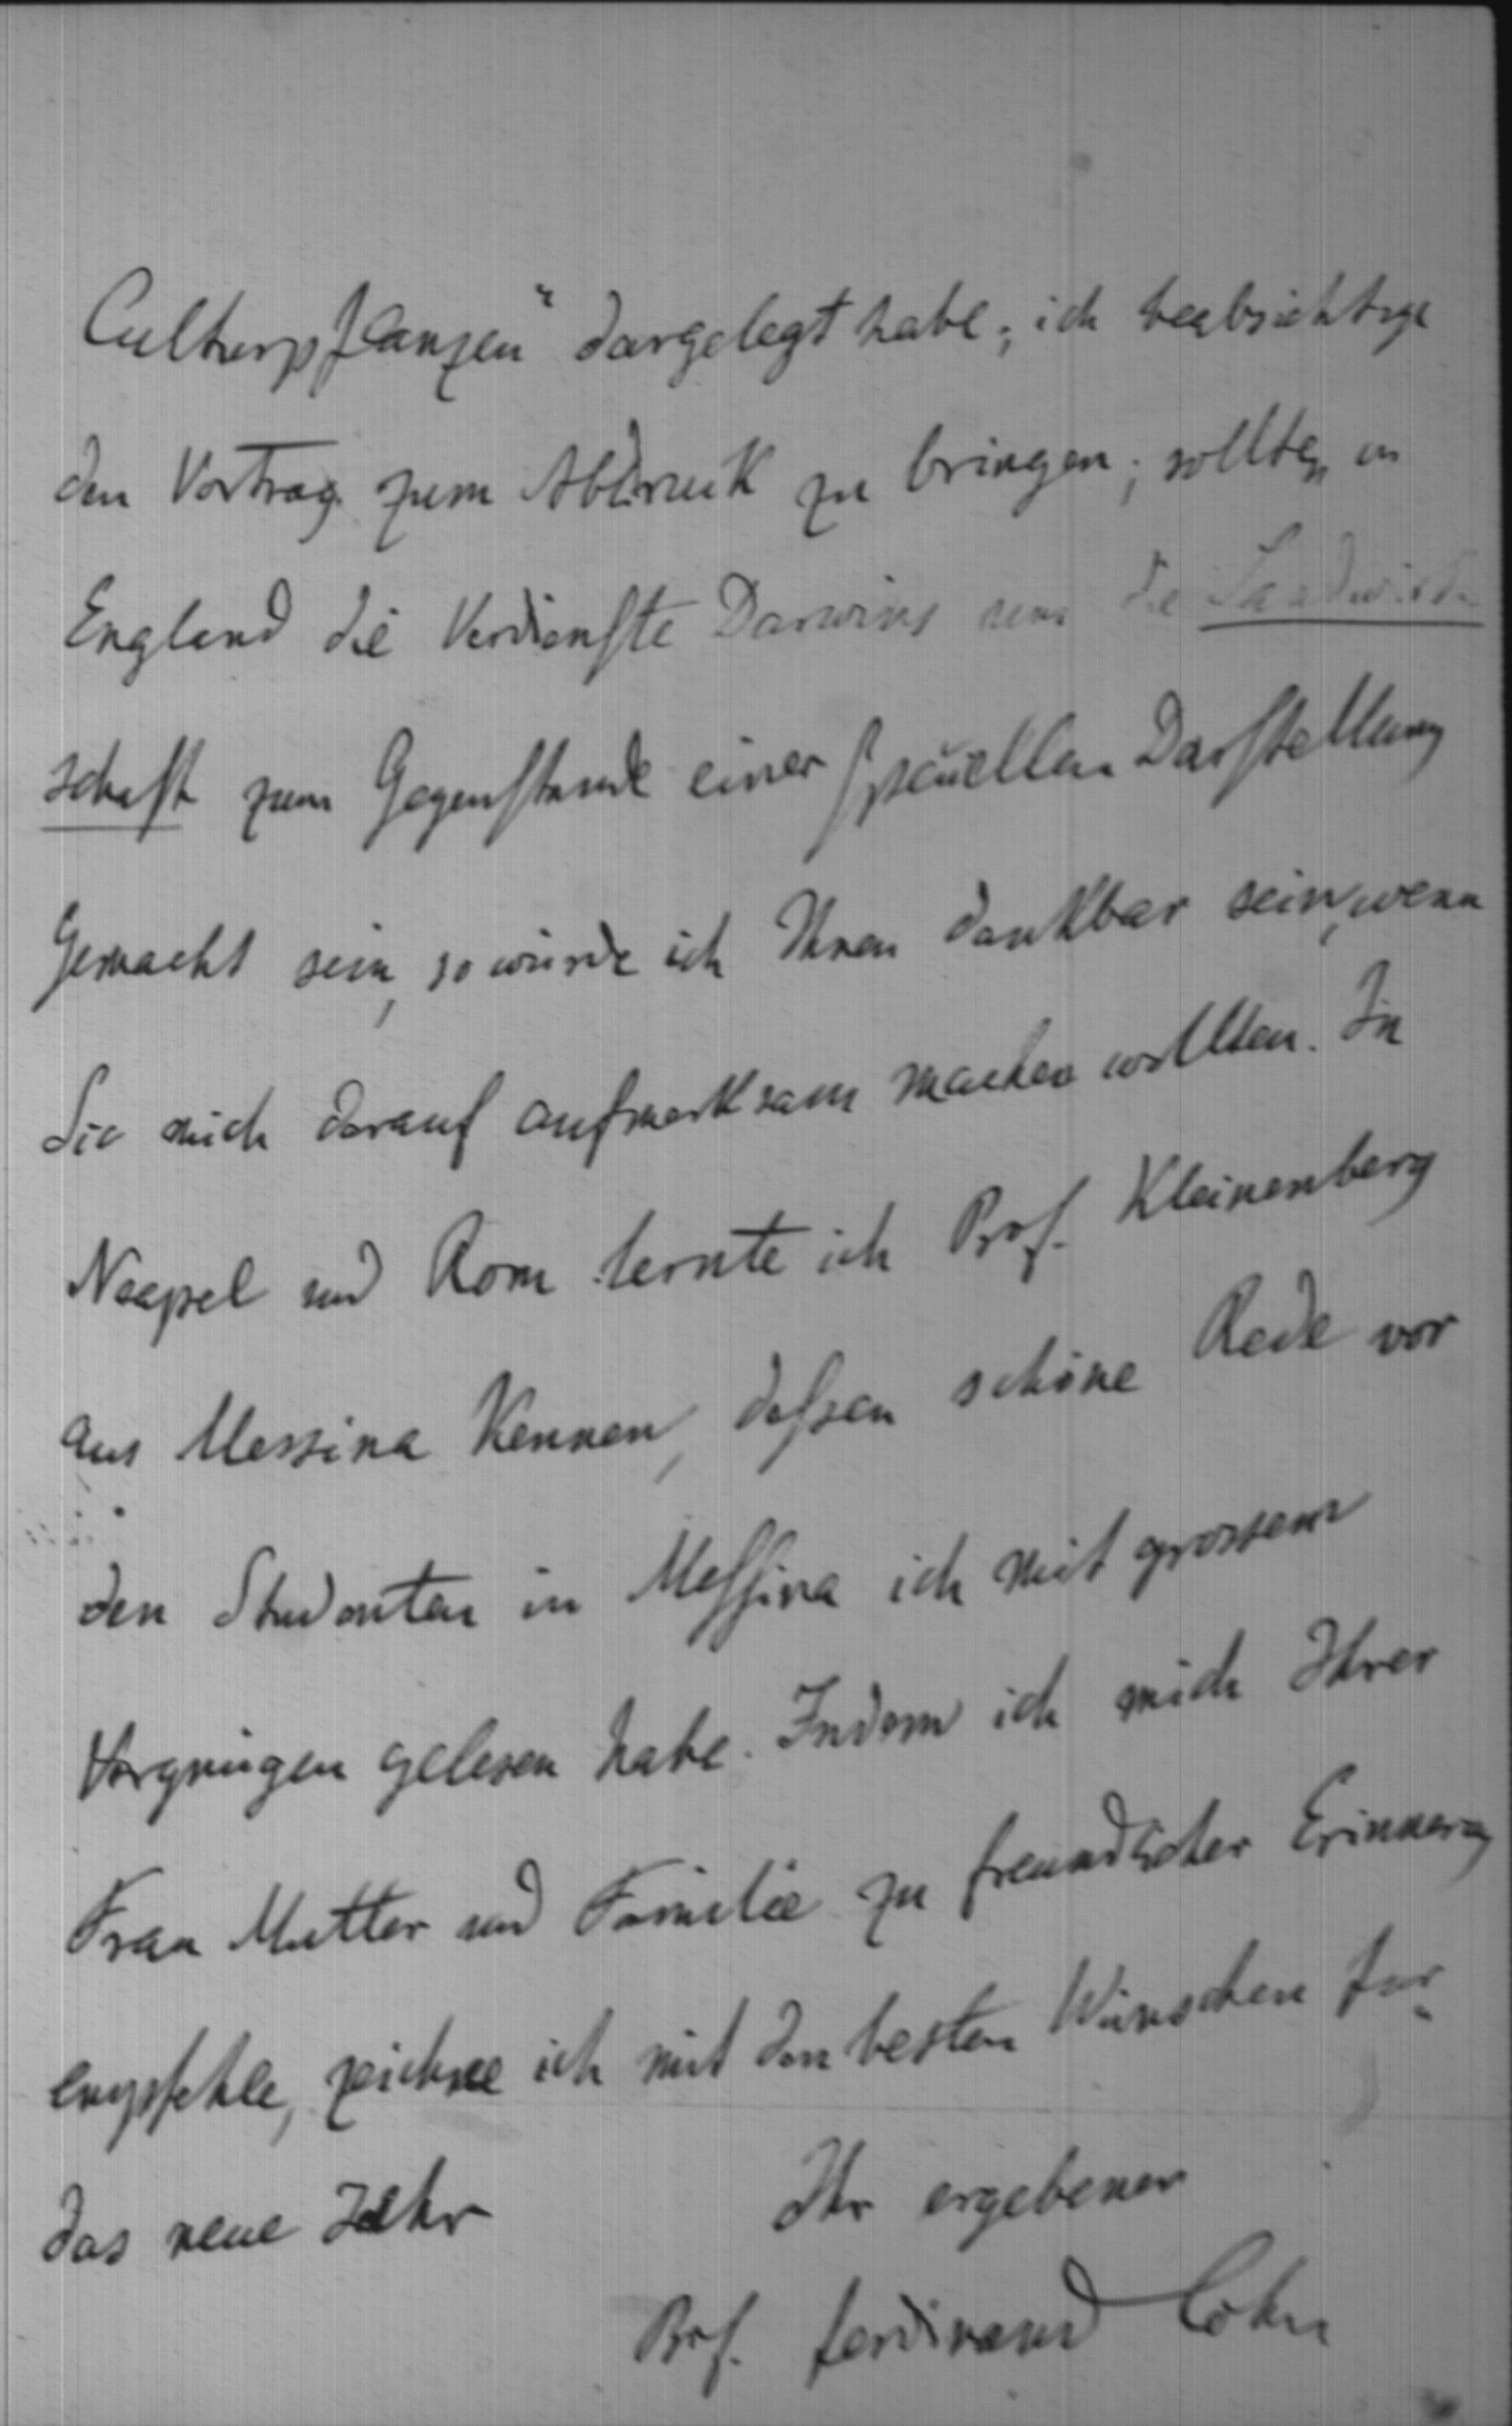 Culturpflanzen" dargelegt habe; ich beabsichtige
den Vortrag zum Abdruck zu bringen; sollten in
England die Verdienste Darwins um die Landwirth
schaft zum Gegenstande einer speciellen Darstellung
gemacht sein, so würde ich Ihnen dankbar sein, wenn
Sie mich darauf aufmerksam machen wollten. In
Neapel und Rom lernte ich Prof. Kleinenberg
aus Messina kennen, dessen schöne Rede vor
den Studenten in Messina ich mit grossem
Vergnügen gelesen habe. Indem ich mich Ihrer
Frau Mutter und Familie zu freundlicher Erinnerung
empfehle, zeichne ich mit den besten Wünschen für
das neue Jahr Ihr ergebener
Prof. Ferdinand Cohn